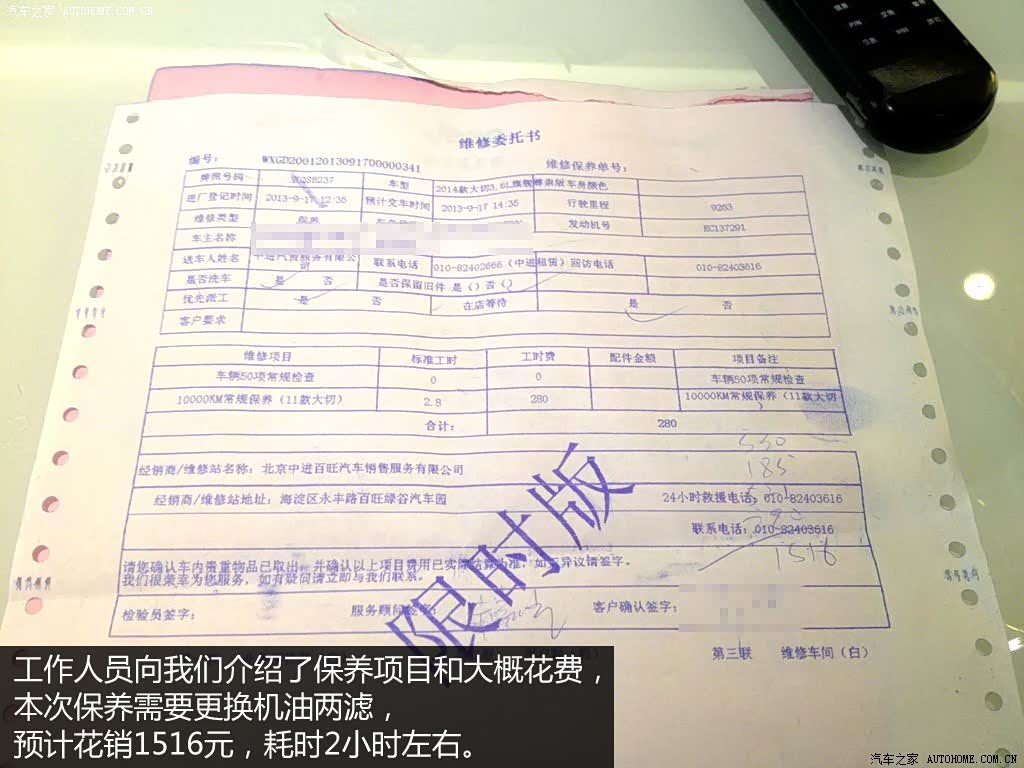 汽车之家 AUTOHOME.COM.CN
维修委托书
编号: WXGD20012013091700000341 维修保养单号:
牌照号码 车型 2014款大切3.6L旗舰尊崇版 车身颜色
进厂登记时间 2013-9-17 12:35 预计交车时间 2013-9-17 14:35 行驶里程 9263
维修类型 保养 发动机号 EC137291
车主名称
送车人姓名 中进汽贸服务有限公司 联系电话 010-82402666(中进租赁) 回访电话 010-82403616
是否洗车 是 否 是否保留旧件 是()否()
优先派工 是 否 在店等待 是 否
客户要求
维修项目 标准工时 工时费 配件金额 项目备注
车辆50项常规检查 0 0 车辆50项常规检查
10000KM常规保养(11款大切) 2.8 280 10000KM常规保养(11款大切)
合计: 280
530
185
经销商/维修站名称: 北京中进百旺汽车销售服务有限公司
经销商/维修站地址: 海淀区永丰路百旺绿谷汽车园 24小时救援电话: 010-82403616
联系电话: 010-82403616
280
1516
请您确认车内贵重物品已取出,并确认以上项目费用已实际结算为准,如无异议请签字。
我们很荣幸为您服务,如有疑问请立即与我们联系。
检验员签字: 服务顾问签字: 客户确认签字:
限时版
第三联 维修车间(白)
工作人员向我们介绍了保养项目和大概花费,
本次保养需要更换机油两滤,
预计花销1516元,耗时2小时左右。
汽车之家 AUTOHOME.COM.CN